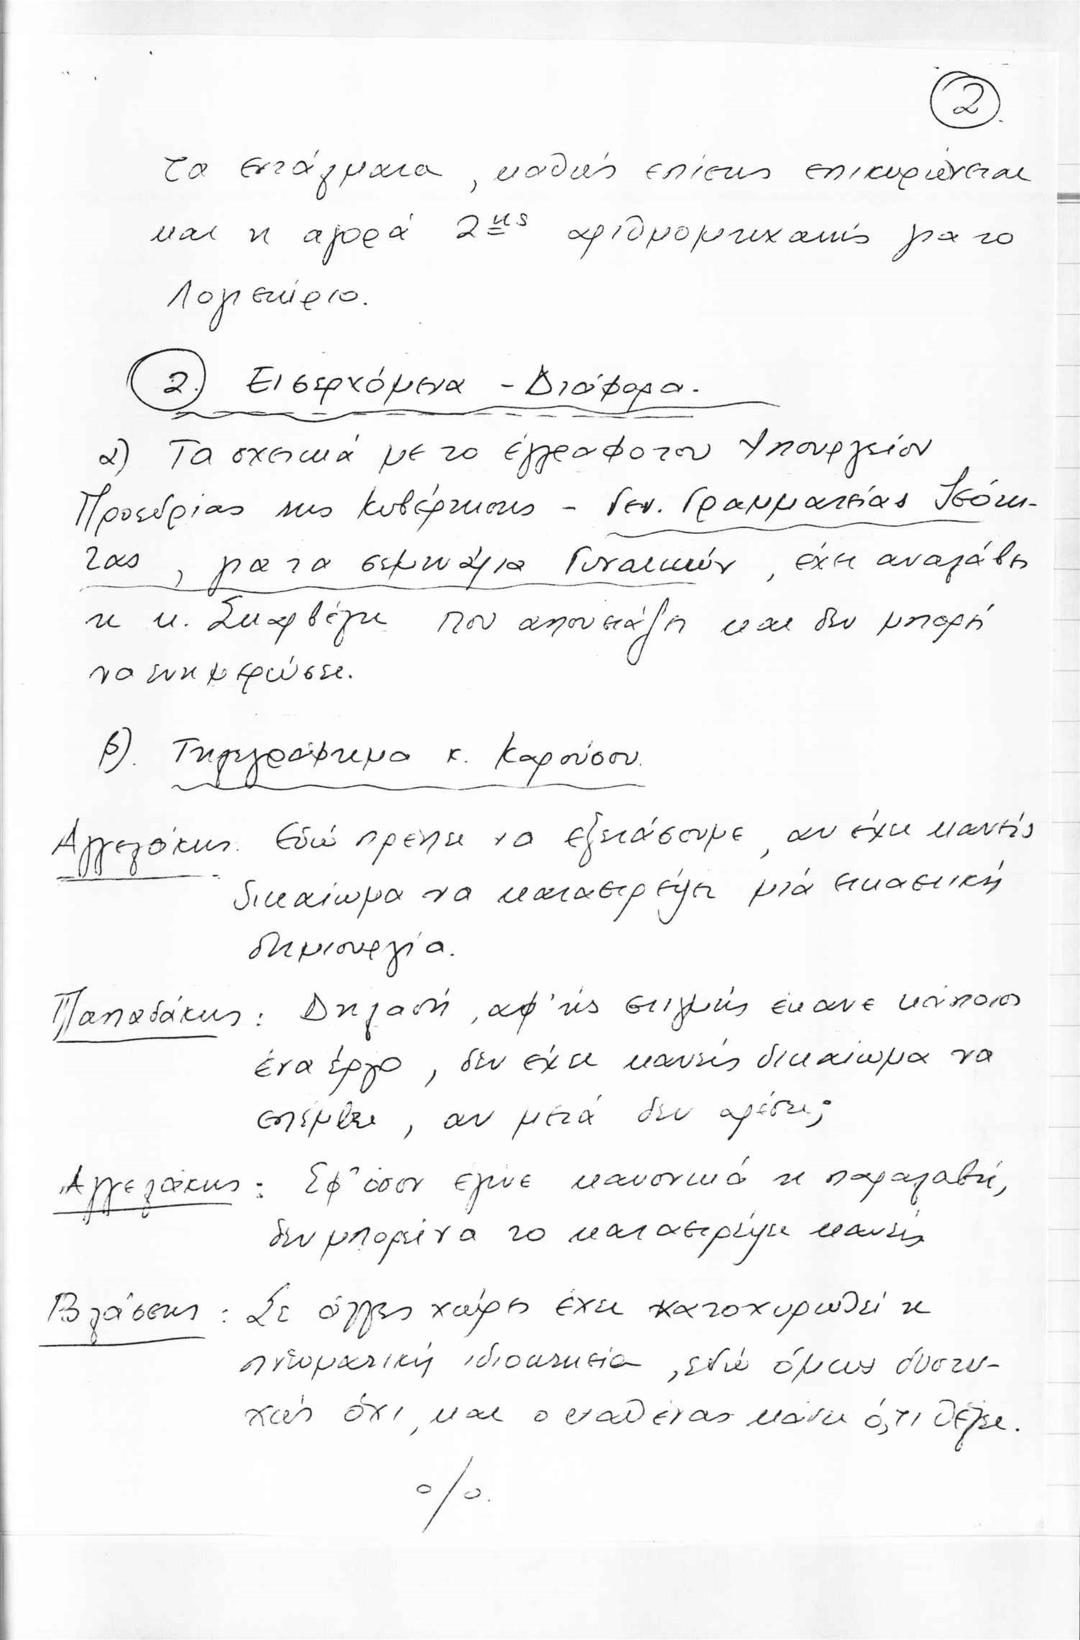 2.
τα εντάγματα, καθώς επίσης επικυρώνεται
και η αγορά 2ης αριθμομηχανής για το
Λογιστήριο.
2. Εισερχόμενα - Διάφορα.
α) Τα σχετικά με το έγγραφο του Υπουργείου
Προεδρίας της Κυβέρνησης - Γεν. Γραμματείας Ισότη-
τας, για τα σεμινάρια Γυναικών, έχει αναλάβει
η κ. που απουσιάζει και δεν μπορεί
να ενημερώσει.
β). Τηλεγράφημα κ. Καρούσου.
Αγγελάκης. Εδώ πρέπει να εξετάσουμε, αν έχει κανείς
δικαίωμα να καταστρέψει μιά εικαστική
δημιουργία.
Παπαδάκης: Δηλαδή, αφ' ης στιγμής έκανε κάποιος
ένα έργο, δεν έχει κανείς δικαίωμα να
επέμβει, αν μετά δεν αρέσει;
Αγγελάκης: Εφ' όσον έγινε κανονικά η παραλαβή,
δεν μπορεί να το καταστρέψει κανείς
Βλάσσης: Σε άλλες χώρες έχει κατοχυρωθεί η
πνευματική ιδιοκτησία, εδώ όμως δυστυ-
χώς όχι, και ο καθένας κάνει ό,τι θέλει.
ο/ο.